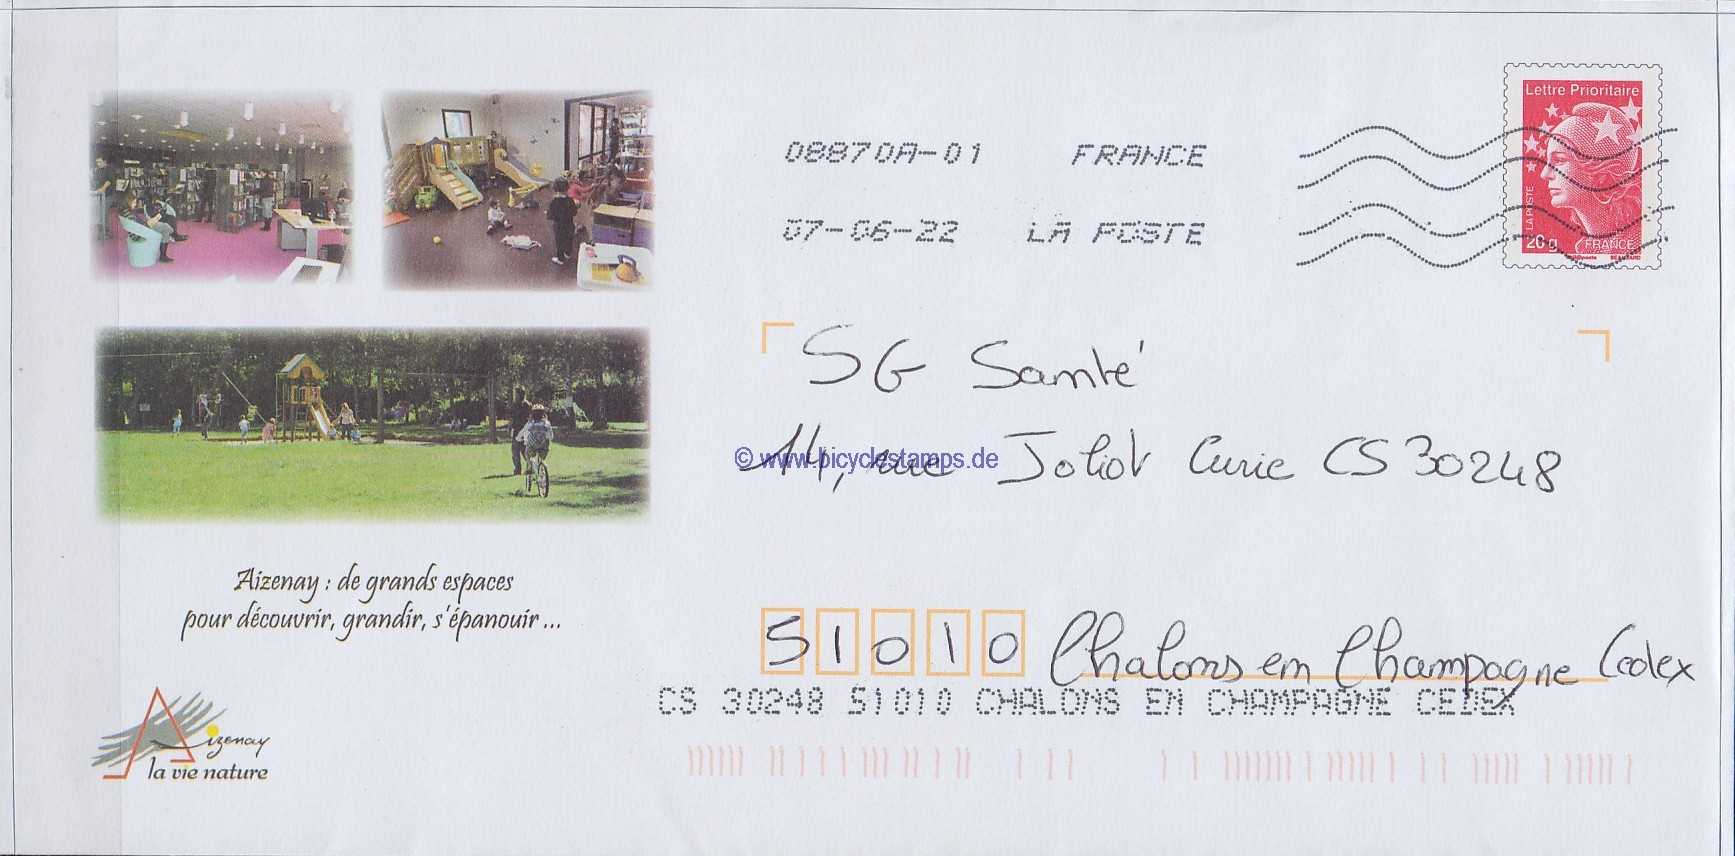 Lettre Prioritaire
LA POSTE
20g FRANCE
08870A-01 FRANCE
07-06-22 LA POSTE
SG Santé
© www.bicyclestamps.de
11, rue Joliot Curie CS 30248
Aizenay : de grands espaces
pour découvrir, grandir, s'épanouir...
51010 Chalons en Champagne Cedex
CS 30248 51010 CHALONS EN CHAMPAGNE CEDEX
Aizenay
la vie nature